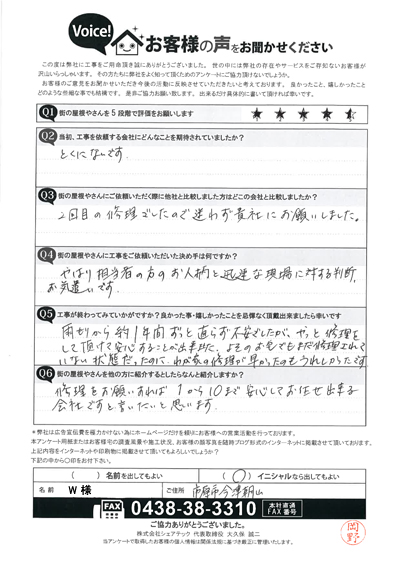 Voice!
お客様の声をお聞かせください
この度は弊社に工事をご用命頂き誠にありがとうございました。 世の中には弊社の存在やサービスをご存知ないお客様が
沢山いらっしゃいます。 その方たちに弊社をよく知って頂くためのアンケートにご協力頂けないでしょうか。
お客様のご意見をお聞かせいただき今後の活動に反映させていただきたいと考えております。 良かったこと、嬉しかったこと
どのような些細な事でも結構です。 是非ご協力お願い致します。 出来るだけ具体的に書いて頂ければ幸いです。
Q1 街の屋根やさんを5段階で評価をお願いします
Q2 当初、工事を依頼する会社にどんなことを期待されていましたか?
とくになしです.
Q3 街の屋根やさんにご依頼いただく際に他社と比較しました方はどこの会社と比較しましたか?
2回目の修理でしたので迷わず貴社にお願いしました。
Q4 街の屋根やさんに工事をご依頼いただいた決め手は何ですか?
やはり担当者の方のお人柄と迅速な現場に対する判断,
お気遣いです.
Q5 工事が終わってみていかがですか?良かった事・嬉しかったことを忌憚なく頂戴出来ましたら幸いです
雨もりから約1年間ずっと直らず不安でしたが、やっと修理を
して頂けて安心することが出来ました. よそのお宅でもまだ修理されて
いない状態だったのに、わが家の修理が早かったのもうれしかったです
Q6 街の屋根やさんを他の方に紹介するとしたらなんと紹介しますか?
修理をお願いすれば1から10まで安心してお任せ出来る
会社ですと言いたいと思います.
*弊社は広告宣伝費を極力かけない為にホームページだけを頼りにお客様への営業活動を行っております。
本アンケート用紙またはお客様宅の調査風景や施工状況、お客様の顔写真を随時ブログ形式のインターネットに掲載させて頂いております。
上記内容をインターネットや印刷物に掲載させて頂いてもよろしいでしょうか?
下記の中から○印をお付下さい。
( ) 名前を出してもよい
(○) イニシャルなら出してもよい
名前 W 様 ご住所 市原市今津朝山
FAX 0438-38-3310 本社直通 FAX番号
ご協力ありがとうございました。
株式会社シェアテック 代表取締役 大久保 誠二
当アンケートで取得したお客様の個人情報は関係法規に基づき厳正に管理いたします。
岡野